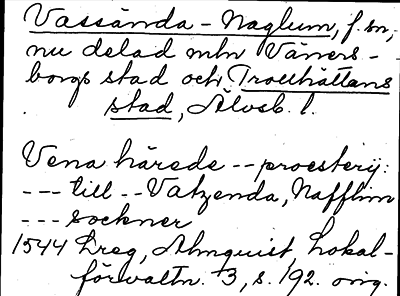 Vassända-Naglum, f. sn,
nu delad mln Väners-
borgs stad och Trollhättans
stad, Älvsb. l.
Vena härede -- proesterij:
--- till -- Vatzenda, Nafflim
--- sockner
1544 Lreg, Almquist, Lokal-
förvaltn. 3, s. 192. orig.